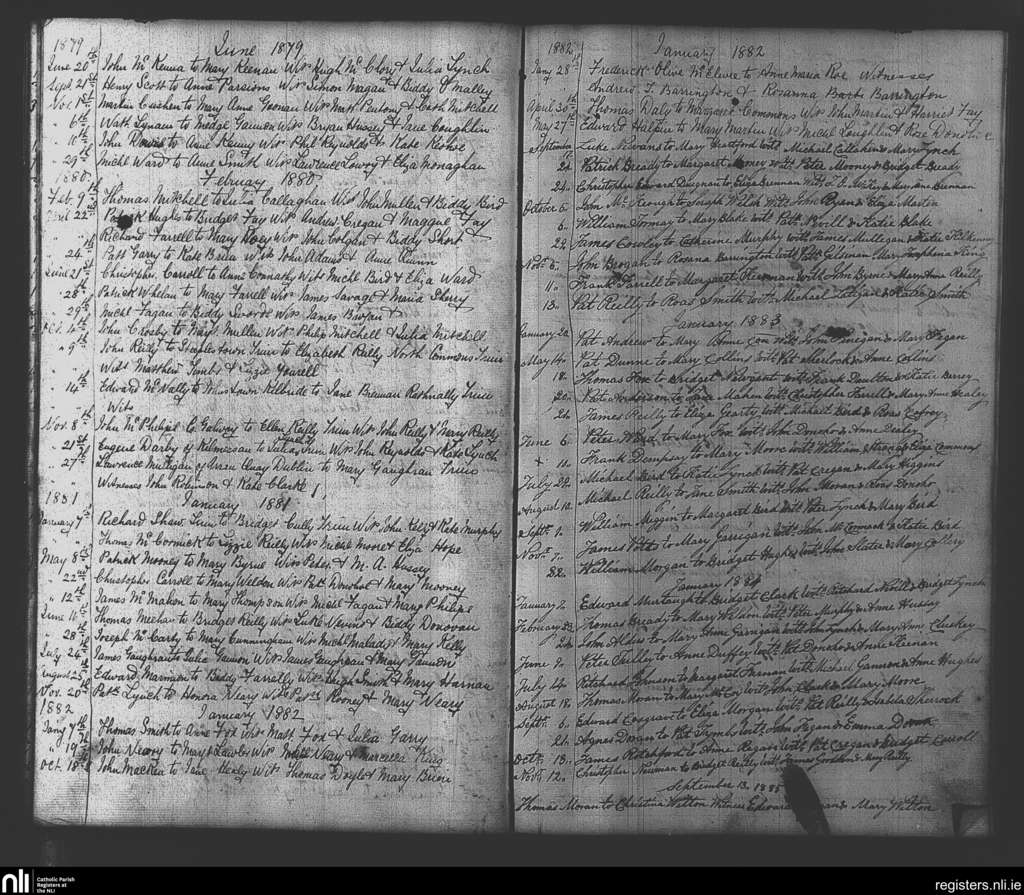 1879 June 1879
June 20th John McKenna to Mary Keenan Wits Hugh McCloy & Julia Lynch
Sept. 21st Henry Scott to Anne Parsions Wits Simon Magan & Biddy O Malley
Nov. 1st Martin Cashen to Mary Anne Goonan Wits Matt & Cath Mitchell
" 6th Wath Lynam to Madge Gannon Wits Bryan Hussey & Jane Coughlin
" 10th John to Anne Kenny Wits Phil Reynolds & Kate
" 29th Michl Ward to Anne Smith Wits Lawrence Lowry & Eliza Monaghan
1880 February 1880
Feb. 9th Thomas Mitchell to Julia Callaghan Wits John Mullen & Biddy Bird
22 Hughes to Bridget Fay Wits Andrew Cregan & Maggie Fay
" Richard Farrell to Mary Wits John Colgan & Biddy Short
" 24th Patt Gary to Kate Brien Wits John Adams & Anne Quinn
June 21st Christopher Carroll to Anne Wits Michl Bird & Eliza Ward
" 28th Patrick Whelan to Mary Farrell Wits James Savage & Maria Sherry
" 29th Michl Fagan to Biddy Wits James
Oct. 4th John Crosby to Mary Mullen Wits Philip Mitchell & Julia Mitchell
" 9th John Reilly to Steeplestown Trim to Elizabeth Reilly North Commons Trim
Wits Matthew & Lizzie Yourell
" 14th Edward McNally to Kilbride to Jane Brennan Rathnally Trim
" " Wits
Nov. 8th John McPhilips Co Galway to Ellen Reilly Trim Wits John Reilly & Mary Reilly
" 21st Eugene Darby of Kilmessan to Julia Lynch Trim Wits John Reynolds & Kate Lynch
" 27th Lawrence Mulligan of Arran Quay Dublin to Mary Gaughan Trim
Witnesses John Robinson & Kate Clarke
1881 January 1881
January 7th Richard Shaw Trim to Bridget Cully Trim Wits John & Kate Murphy
" Thomas McCormick to Lizzie Reilly Wits Michl Moore & Eliza Hope
May 8th Patrick Mooney to Mary Byrne Wits Peter & M. A. Hussey
" 22nd Christopher Carroll to Mary Weldon Wits Pat Donohoe & Mary Mooney
" 12th James McMahon to Mary Thompson Wits Michl Fagan & Mary Philips
June 16th Thomas Meehan to Bridget Reilly Wits Luke & Biddy Donovan
" 28th Joseph McCarty to Mary Cunningham Wits Michl Malady & Mary Kelly
July 24th James Gaughran to Julia Gannon Wits James Gaughran & Mary Gannon
August 25 Edward Marmion to Biddy Farrelly Wits Hugh Smith & Mary Harnan
Nov. 20th Patk Lynch to Honora Cleary Wits Patk Rooney & Mary Weary
1882 January 1882
Jany 7th Thomas Smith to Anne Fox Wits Matt Fox & Julia Garry
" 19th John Neary to Mary Lawler Wits Neary & Marcella King
Oct. 18th John Macken to Jane Healy Wits Thomas Doyle & Mary Brien
1882 January 1882
Jany 28th Frederick Olive McElwee to Anne Maria Roe Witnesses
" Andrew T. Barrington & Rosanna Barrington
April 30th Thomas Daly to Margaret Commons Wits John Martin & Harriet Fay
May 27th Edward Halpin to Mary Martin Wits Michl Coughlin & Rose Donohoe
September Luke to Mary With Michael Callahen & Mary Lynch
24 Patrick Bready to Margaret With Peter Mooney & Bridget Bready
24. Christopher Edward Duignan to Eliza Brennan With & Mary Anne Brennan
October 5 John McKeough to Joseph Walsh With John Ryan & Eliza Martin
6. William to Mary Blake with Patt & Katie Blake
22 James Cowley to Catherine Murphy with James Mullegan & Katie Kilkenny
Novr. 6. John Brogan to Rosana Barrington with Patt Josephena King
11. Frank Farrell to Margaret With John Byrne & Mary Anne Reilly
13. Pat Reilly to Roas Smith With Michael & Katie Smith
January 1883
January 22 Pat Andrew to Mary Anne With John Finegan & Mary Fagan
May 14. Pat Dunne to Mary Collins With Pat Morlock & Anne Collins
18. Thomas Fox to Bridget with Frank & Katie Berrey
20. Anderson to Mahen With Christopher Farrell & Mary Anne Healey
24. James Reilly to Eliza Gearty With Michael Bird & Roas Cofrey
June 6. Peter Ward to Mary Fox With John Donoho & Anne Dealey
x 10. Frank Dempsey to Mary Moore with William & Eliza Commons
July 22. Michael Bird to Katie Lynch With Pat Cregan & Mary Higgins
August 12. Mikael Reilly to Jane Smith With John Moran & Roas Donoho
Septr. 9. William to Margaret Bird With Peter Lynch & Mary Bird
Novr. 7. James Potts to Mary Garrigan With John McCormock & Katie Bird
22. William Morgan to Bridget Hughes With John & Mary
January 1884
January 2. Edward Murtaugh to Bridget Clark With Ritchard & Bridget Lynch
February 23. Thomas Bready to Mary Weldon With Peter Murphy & Anne Hussey
24. John to Mary Anne Garrigan With John Lynch & Mary Ann Cluskey
June 9. Peter Tulley to Anne Duffey With Pat Donoho & Anne Keenan
July 14. Ritchard to Margaret Farnan With Michael Gannon & Anne Hughes
August 18. Thomas Moran to Mary With John Clark & Mary Moore
Septr. 6. Edward Cosgrave to Eliza Morgan With Pat Reilly & Isabila Sherlock
21. Agnes Doran to Pat With John Fagan & Emma Doran
Octr. 15. James Ratchford to Anne Regan With Pat Cregan & Bridget Carroll
Novr. 12. Christopher Newman to Bridget Reilly With James Gordson & Mary Reilly
September 13. 1885
Thomas Moran to Christina Watton Witness Edward & Mary Watton
nli Catholic Parish
Registers at
the NLI
registers.nli.ie